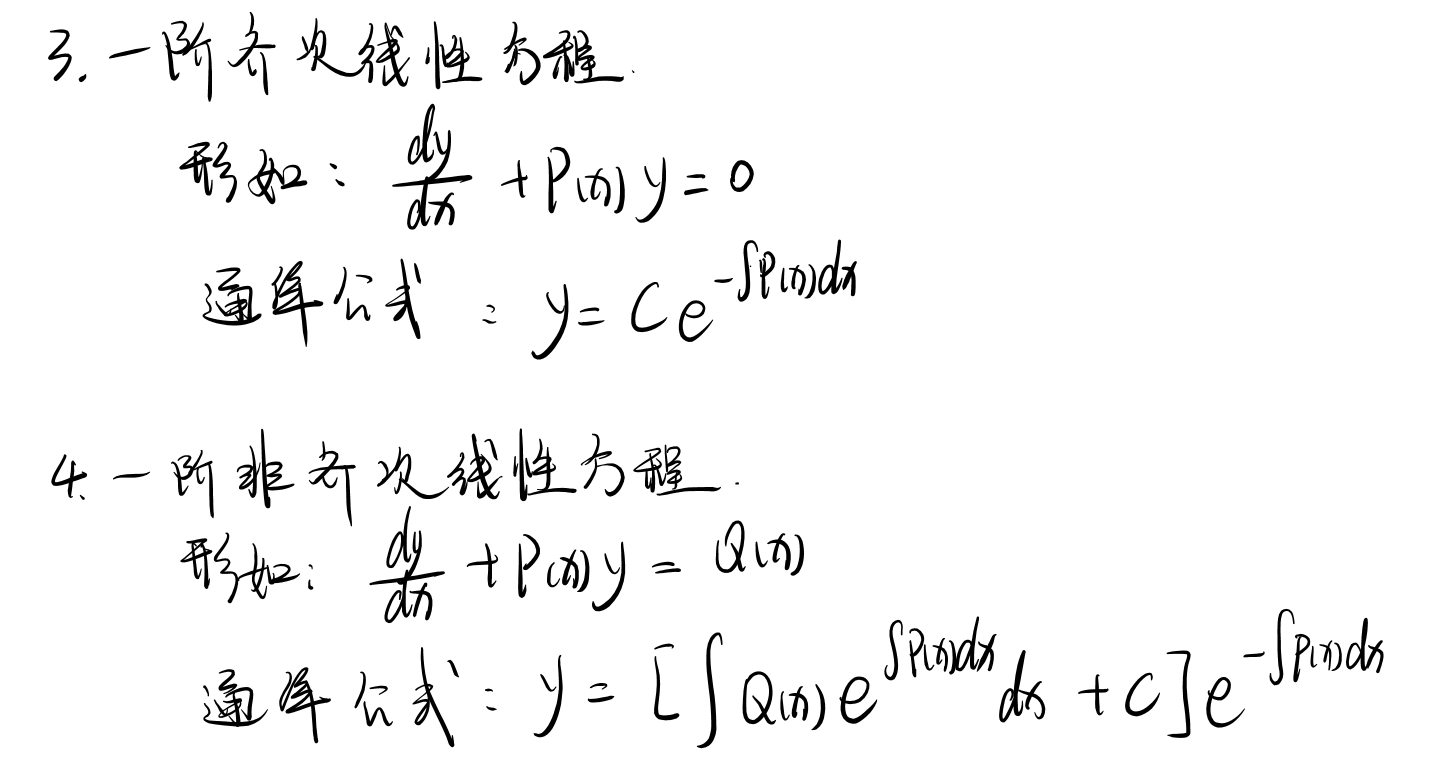 3. 一阶齐次线性方程.
形如: dy/dx + P(x)y = 0
通解公式: y = Ce^{-∫P(x)dx}
4. 一阶非齐次线性方程.
形如: dy/dx + P(x)y = Q(x)
通解公式: y = [∫Q(x)e^{∫P(x)dx}dx + C]e^{-∫P(x)dx}